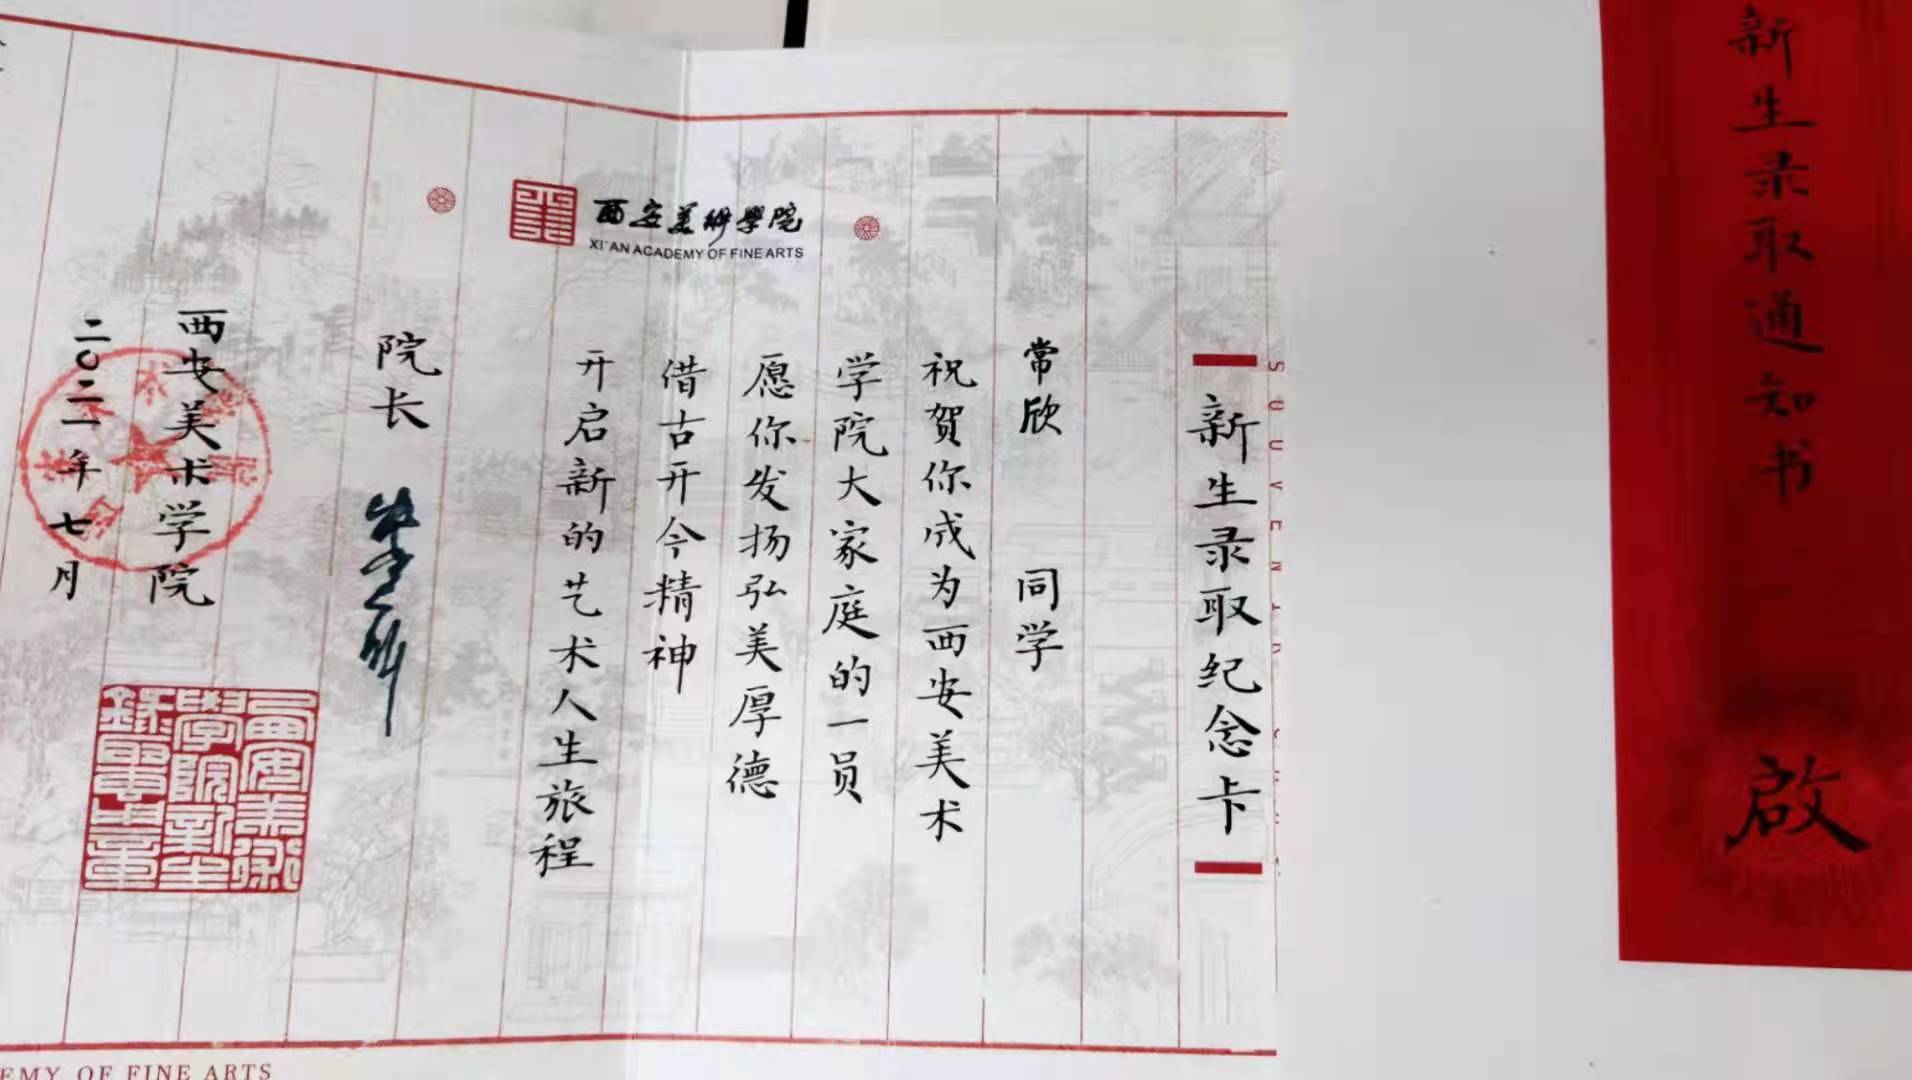 新生录取通知书
啟
新生录取纪念卡
常欣 同学
祝贺你成为西安美术
学院大家庭的一员
愿你发扬弘美厚德
借古开今精神
开启新的艺术人生旅程
西安美術學院
XI'AN ACADEMY OF FINE ARTS
院长
西安美术学院
二〇二一年七月
西安美術學院新生錄取之章
EMY OF FINE ARTS